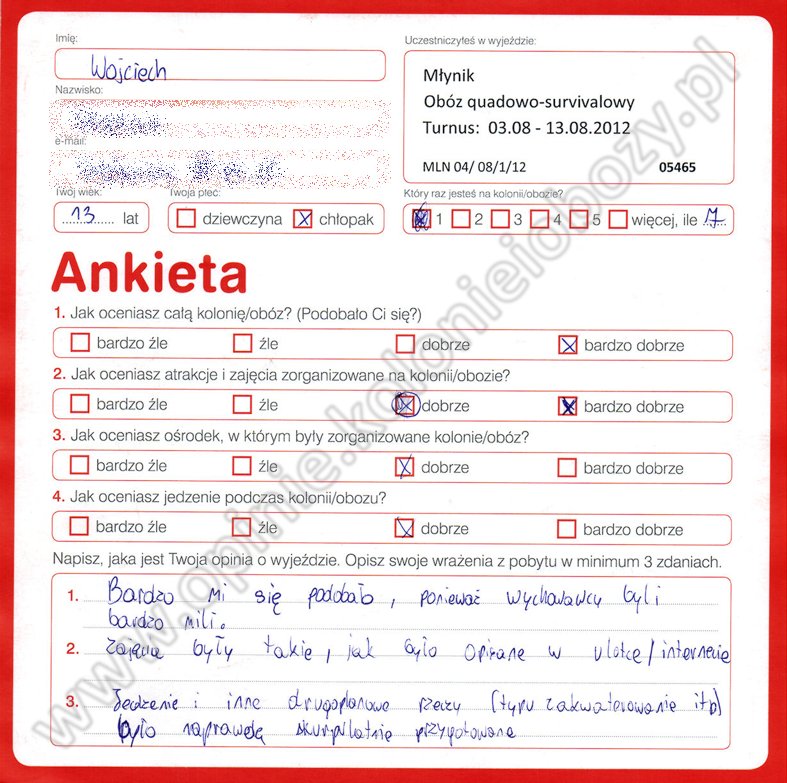 Imię:
Wojciech
Nazwisko:
e-mail:
Twój wiek:
13 lat
Twoja płeć:
dziewczyna chłopak
Uczestniczyłeś w wyjeździe:
Młynik
Obóz quadowo-survivalowy
Turnus: 03.08 - 13.08.2012
MLN 04/ 08/1/12 05465
Który raz jesteś na kolonii/obozie?
1 2 3 4 5 więcej, ile 7
Ankieta
1. Jak oceniasz całą kolonię/obóz? (Podobało Ci się?)
bardzo źle źle dobrze bardzo dobrze
2. Jak oceniasz atrakcje i zajęcia zorganizowane na kolonii/obozie?
bardzo źle źle dobrze bardzo dobrze
3. Jak oceniasz ośrodek, w którym były zorganizowane kolonie/obóz?
bardzo źle źle dobrze bardzo dobrze
4. Jak oceniasz jedzenie podczas kolonii/obozu?
bardzo źle źle dobrze bardzo dobrze
Napisz, jaka jest Twoja opinia o wyjeździe. Opisz swoje wrażenia z pobytu w minimum 3 zdaniach.
1. Bardzo mi się podobało, ponieważ wychowawcy byli
bardzo mili.
2. Zajęcia były takie, jak było opisane w ulotce/internecie
3. Jedzenie i inne drugoplanowe rzeczy (typu zakwaterowanie itp)
było naprawdę skurpilatnie przygotowane
www.opinie.kolonieiobozy.pl